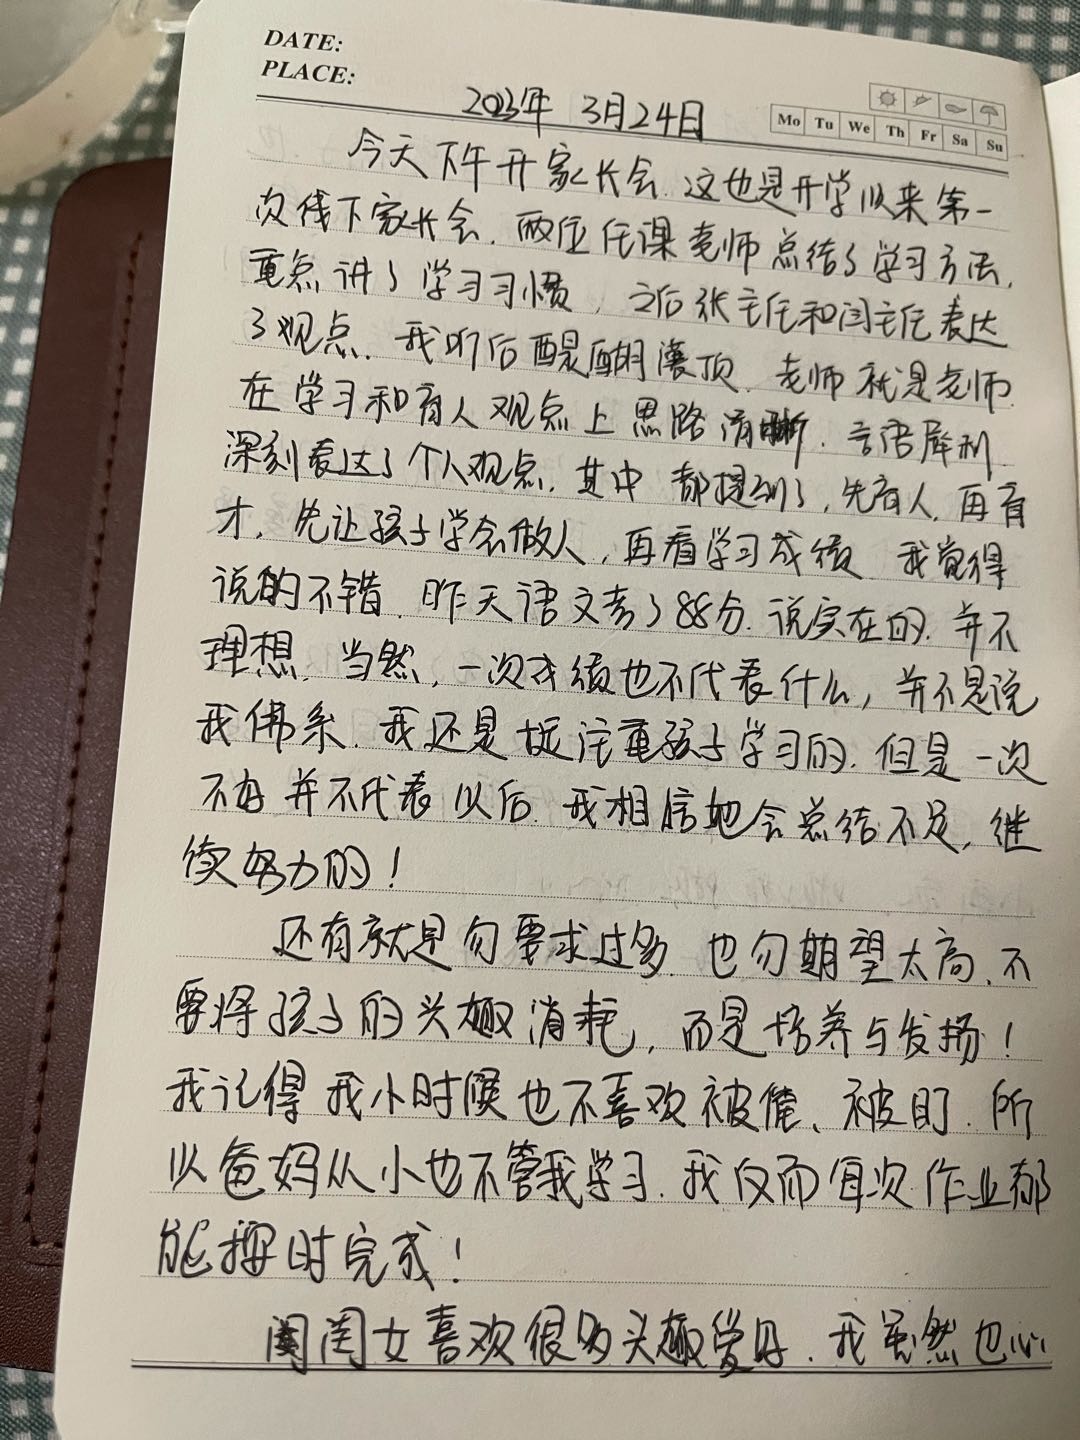 DATE:
PLACE:
Mo Tu We Th Fr Sa Su
2023年 3月24日
今天下午开家长会.这也是开学以来第一
次线下家长会.两位任课老师总结了学习方法,
重点讲了学习习惯,之后张主任和闫主任表达
了观点.我听后醍醐灌顶.老师就是老师.
在学习和育人观点上思路清晰.言语犀利
深刻表达了个人观点.其中都提到了,先育人,再育
才,先让孩子学会做人,再看学习成绩.我觉得
说的不错.昨天语文考了88分.说实在的.并不
理想.当然,一次成绩也不代表什么,并不是说
我佛系.我还是挺注重孩子学习的.但是一次
不好并不代表以后.我相信她会总结不足,继
续努力的!
还有就是勿要求过多.也勿期望太高.不
要将孩子的兴趣消耗,而是培养与发扬!
我记得我小时候也不喜欢被催、被盯.所
以爸妈从小也不管我学习.我反而每次作业都
能按时完成!
闺女喜欢很多兴趣爱好.我虽然也心